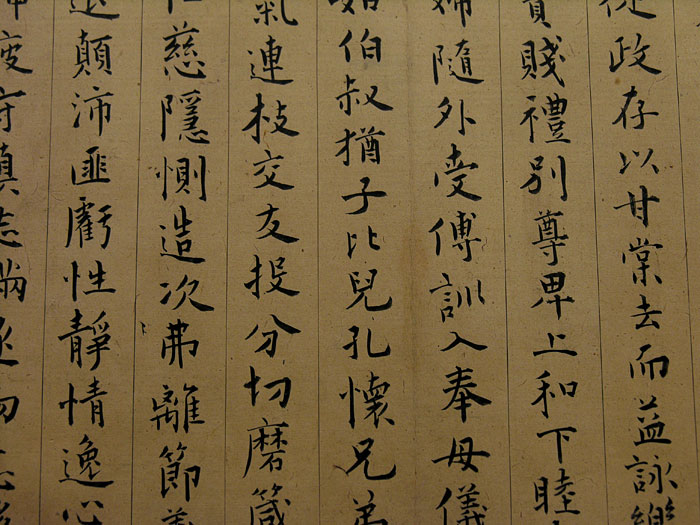 從政存以甘棠去而益詠樂
貴賤禮別尊卑上和下睦
婦隨外受傅訓入奉母儀
如伯叔猶子比兒孔懷兄弟
氣連枝交友投分切磨箴
仁慈隱惻造次弗離節義
退顛沛匪虧性靜情逸心
神疲守真志滿逐物意